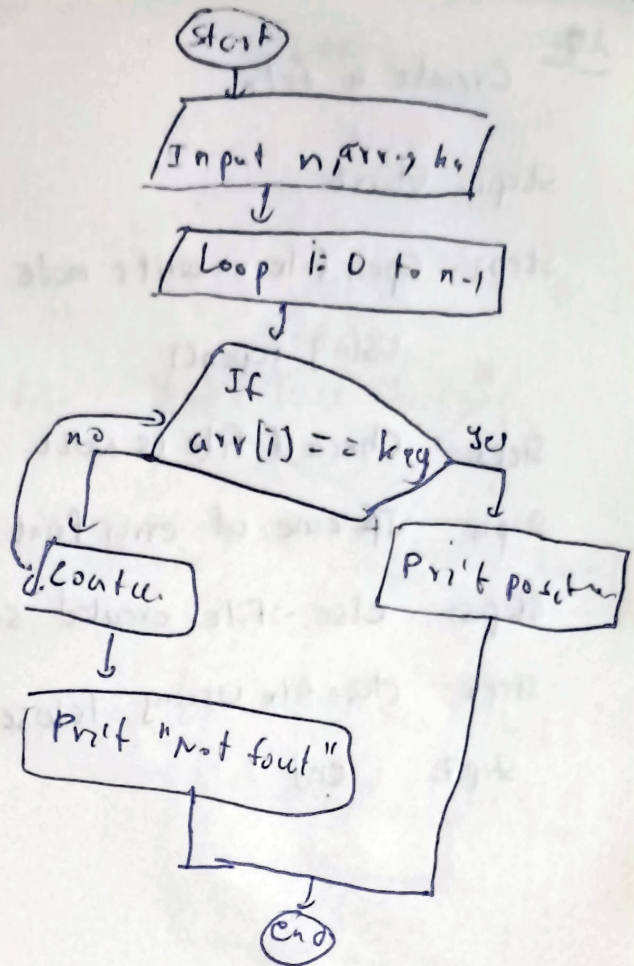 Start
Input n, arr, key
Loop i: 0 to n-1
If
arr[i] == key
no
yes
Contu.
Prit position
Prit "Not fout"
end